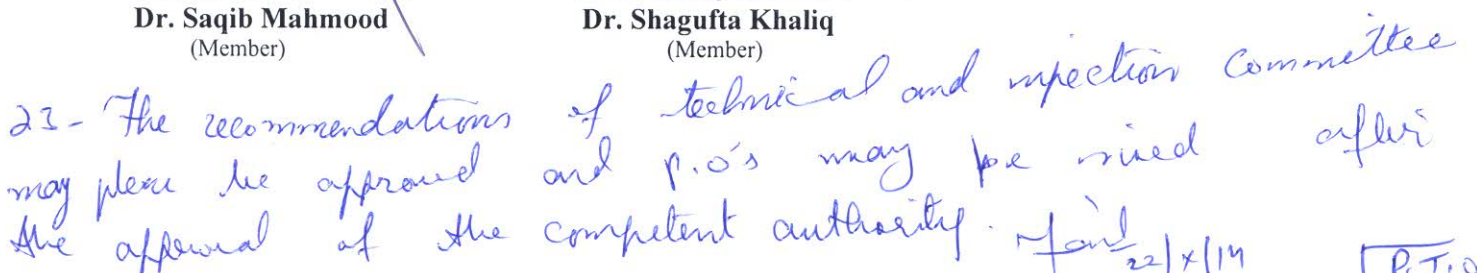 Dr. Saqib Mahmood Dr. Shagufta Khaliq
(Member) (Member)
23- The recommendations of technical and inspection Committee
may please be approved and P.O's may be after
the approval of the competent authority. 22/X/
P.T.O